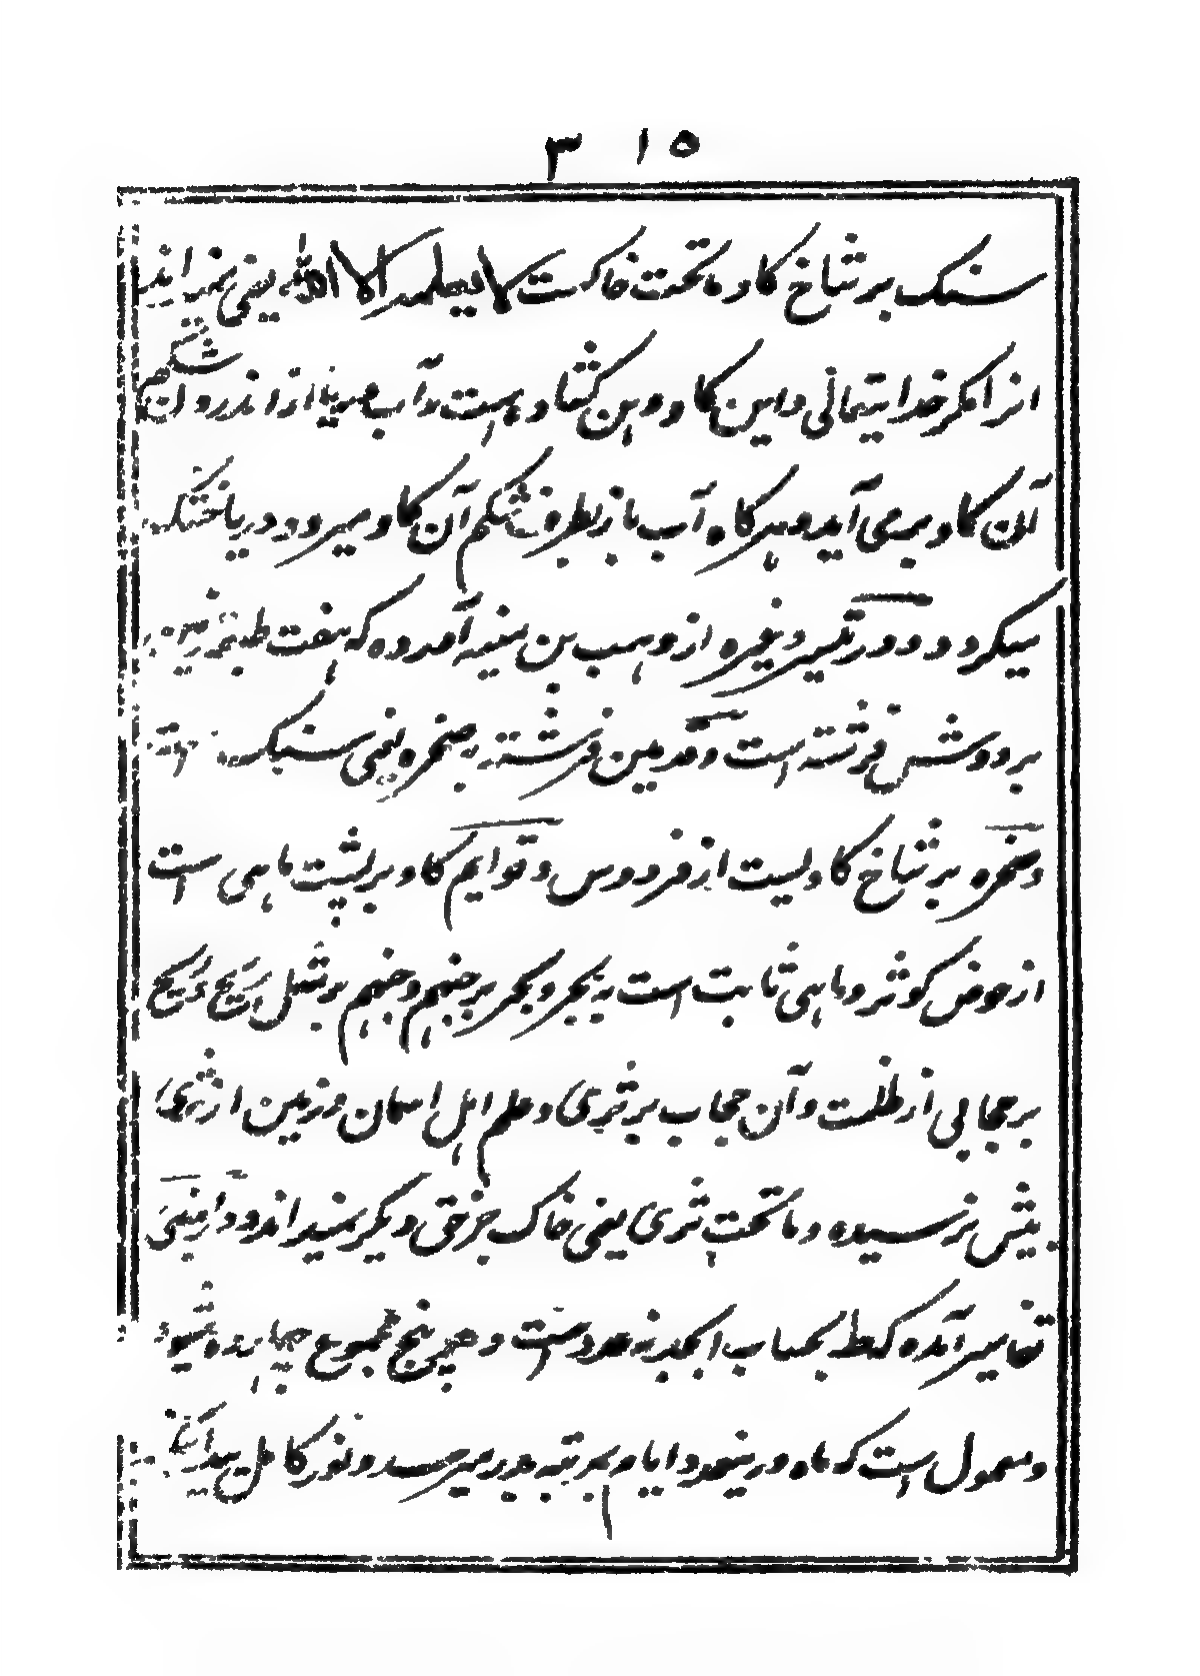 ٣ ١ ٥
سنک بر شاخ کاو ماتحت خاکست لا یعلمه الا الله یعنی نمیداند
انرا مکر خدایتعالی و این کاو دهن کشاده است و آب دریا از اندرون شکم
آن کاو برمی آید و هرکاه آب باز بطرف شکم آن کاو میرود دریا خشک
میکردد و در تفسیر و غیره از وهب بن منبه آمده که هفت طبقه زمین
بر دوش فرشته است و قدمین فرشته بر صخره یعنی سنک
و صخره بر شاخ کاویست از فردوس و قوایم کاو بر پشت ماهی است
از حوض کوثر و ماهی ثابت است به بحر و بحر بر جهنم و جهنم بر
بر حجابی از ظلمت و آن حجاب بر ثری و علم اهل اسمان و زمین از ثری
بیش نرسیده و ماتحت ثری یعنی خاک جز حق دیکر نمیداند و در بعضی
تفاسیر آمده که طه بحساب ابجد نه عددست و هی پنج مجموع چهارده میشود
و معمول است که ماه درینعدد ایام بمرتبه بدر میرسد و نور کامل پیدا